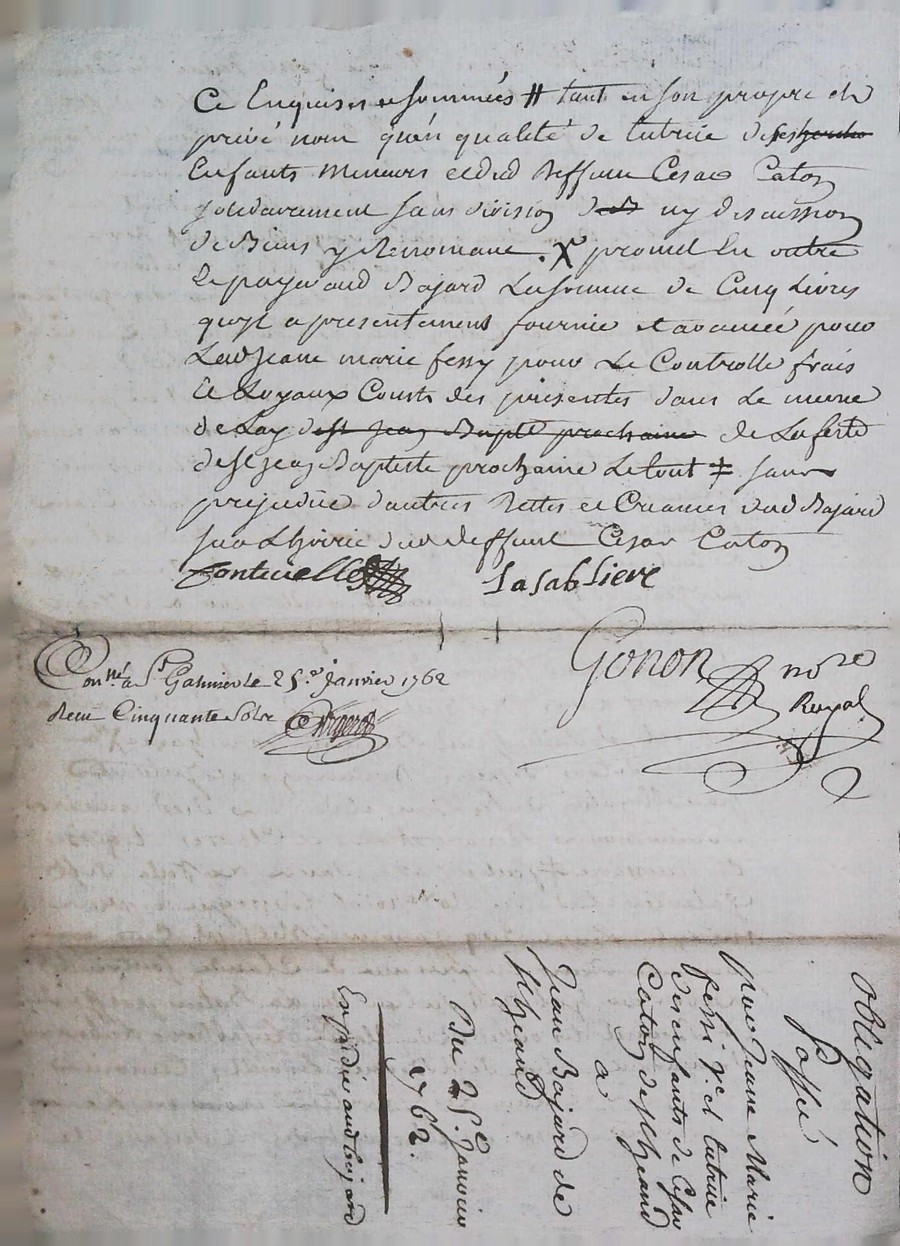 Ce Enquises et sommées # tant en son propre et
privé nom qu'en qualité de tutrice de ses
Enfants Mineurs et dud deffunt Cesar Caton
solidairement sans division ny discussion
de Biens y Renoncant . X promet En outre
de payer aud Bajard La somme de Cinq Livres
qu'il a presentement fournie et avancée pour
Lad Jeane marie fessy pour Le Controlle frais
et Loyaux Couts des presentes dans Le meme
delay de st Jean Bapte prochaine de La feste
de st Jean Baptiste prochaine Le tout ≠ sans
prejudice d'autres Dettes et Creances dud Bajard
sur Lhoirie dud deffunt Cesar Caton
fontenelle Lasabliere
Gonon nore
Royal
Con.llé a St Galmier le 25.e Janvier 1762
Receu Cinquante sols
obligation
Passé
par Jeanne Marie
fessi v.e et tutrice
des enfants de Cesar
Caton de st heand
a
Jean Bajard de
st heand
Du 25.e Janvier
1762.
Expedié aud bajard